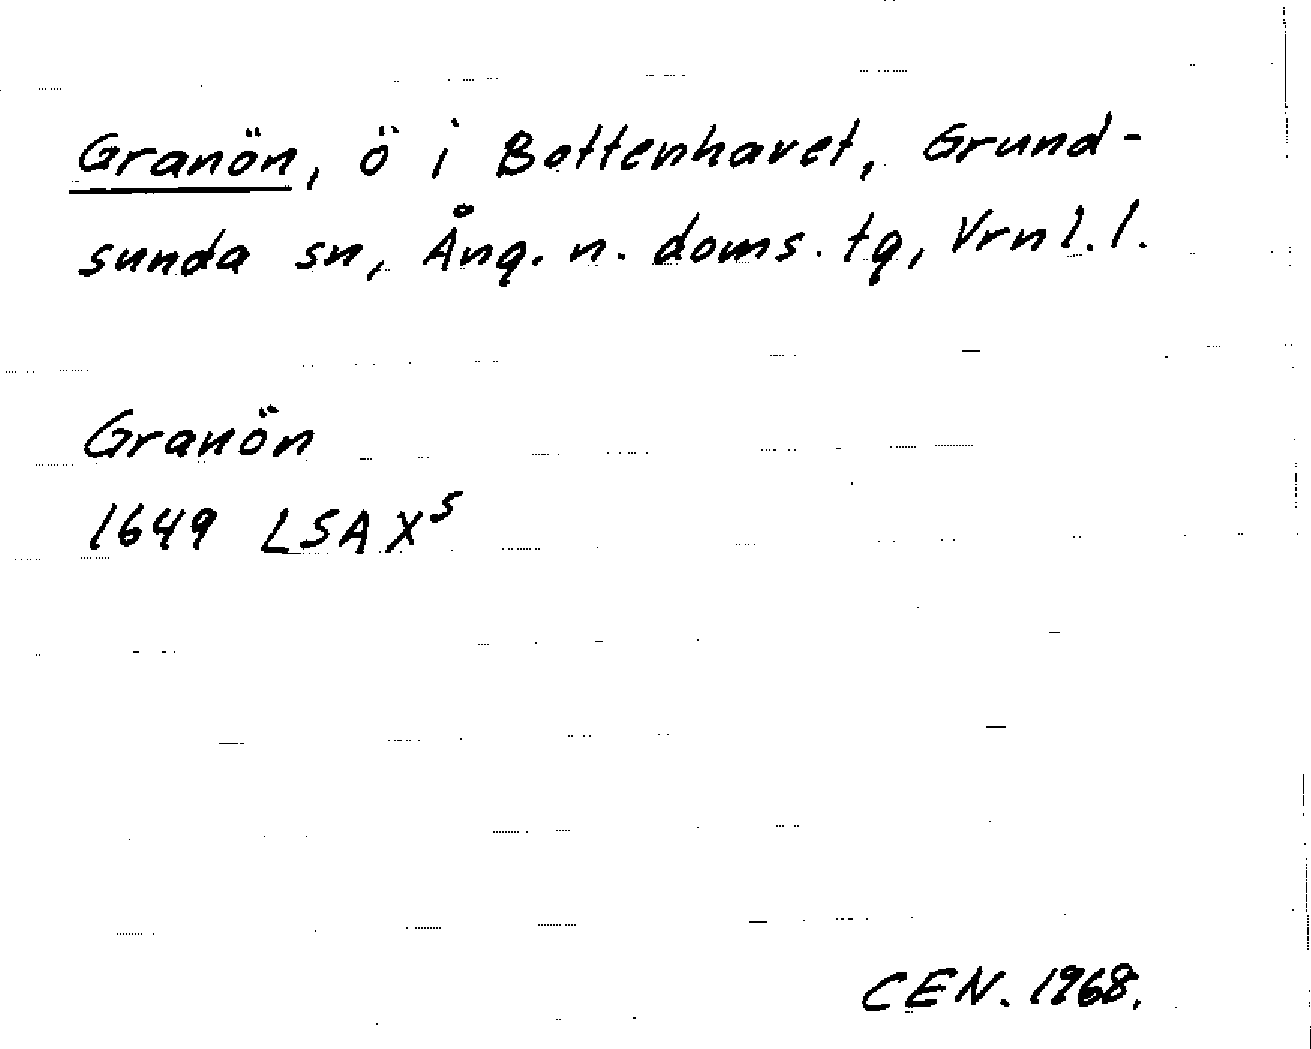 Granön, ö i Bottenhavet, Grund-
sunda sn, Ång. n. doms. tg, Vrnl. l.
Granön
1649 LSA X⁵
CEN. 1968.